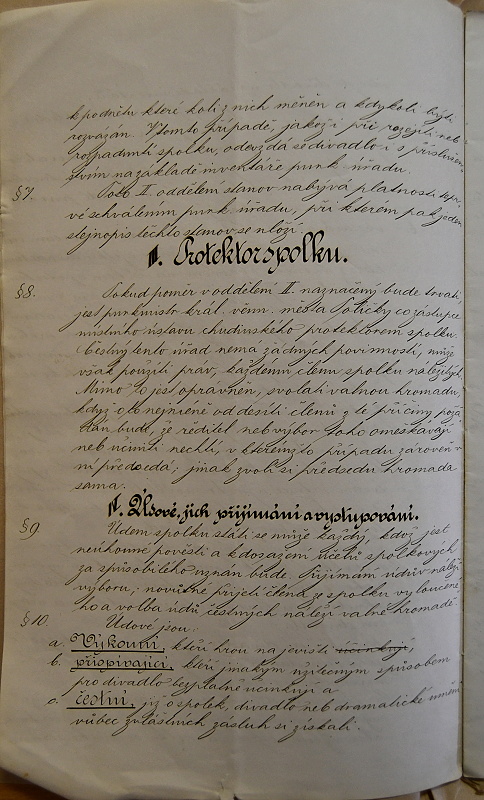 k podnětu které koli z nich měněn a kdykoli býti
rozvázán. V tomto případě, jakož i při rozejití neb
rozpadnutí spolku, odevzdá se divadlo i s příslušen-
stvím na základě inventáře purk. úřadu.
§ 7. Toto II. oddělení stanov nabývá platnosti teprv
vé schválením purk. úřadu, při kterém pak jeden
stejnopis těchto stanov se uloží.
III. Protektor spolku.
§ 8. Pokud poměr v oddělení II. naznačený bude trvati,
jest purkmistr král. věnn. města Poličky co zástupce
místního ústavu chudinského protektorem spolku.
Čestný tento úřad nemá žádných povinností, může
však použíti práv, každému členu spolku náležitých.
Mimo to jest oprávněn, svolati valnou hromadu,
když o to nejméně od desíti členů z té příčiny požá-
dán bude, že ředitel neb výbor toho omeškávají
neb učiniti nechtí, v kterémžto případu zároveň v
ní předsedá; jinak zvolí si předsedu hromada
sama.
IV. Údové, jich přijímání a vystupování.
§ 9. Údem spolku státi se může každý, když jest
neúhonné pověsti a k dosažení účelů spolkových
za spůsobilého uznán bude. Přijímání údův náleží
výboru; novičné přijetí člena ze spolku vyloučené-
ho a volba údů čestných náleží valné hromadě.
§ 10. Údové jsou:
a. Výkonní, kteří hrou na jevišti účinkují,
b. přispívající, kteří jinakým užitečným spůsobem
pro divadlo bezplatně účinkují a
c. čestní, již o spolek, divadlo neb dramatické umění
vůbec zvláštních zásluh si získali.